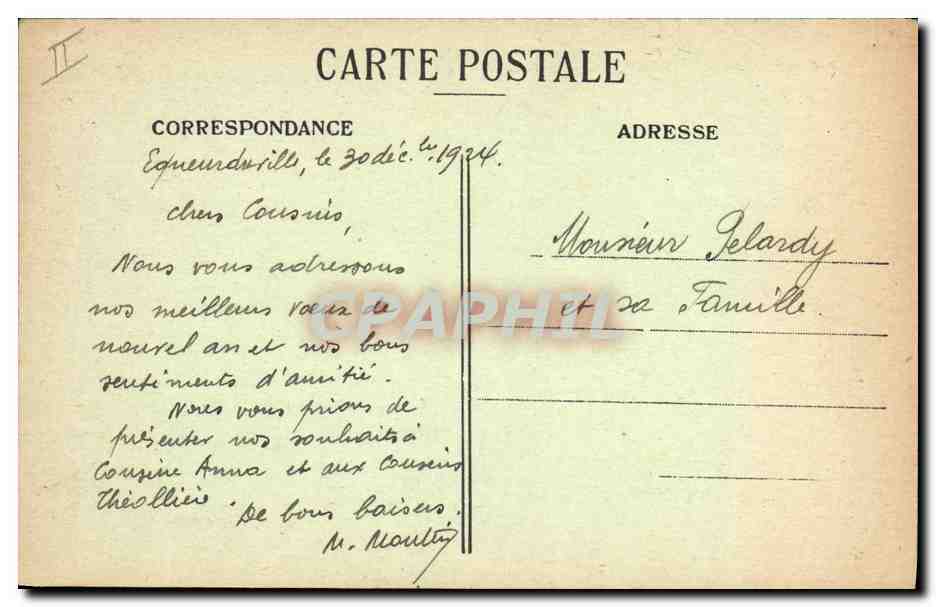 II
CARTE POSTALE
CORRESPONDANCE
ADRESSE
Equeurdreville, le 30 déc.bre 1924.
chers Cousins,
Nous vous adressons
nos meilleurs vœux de
nouvel an et nos bons
sentiments d'amitié.
Nous vous prions de
présenter nos souhaits à
Cousine Anna et aux Cousins
Théollière.
De bons baisers.
M.
Monsieur Pelardy
et sa Famille.
CPAPHIL